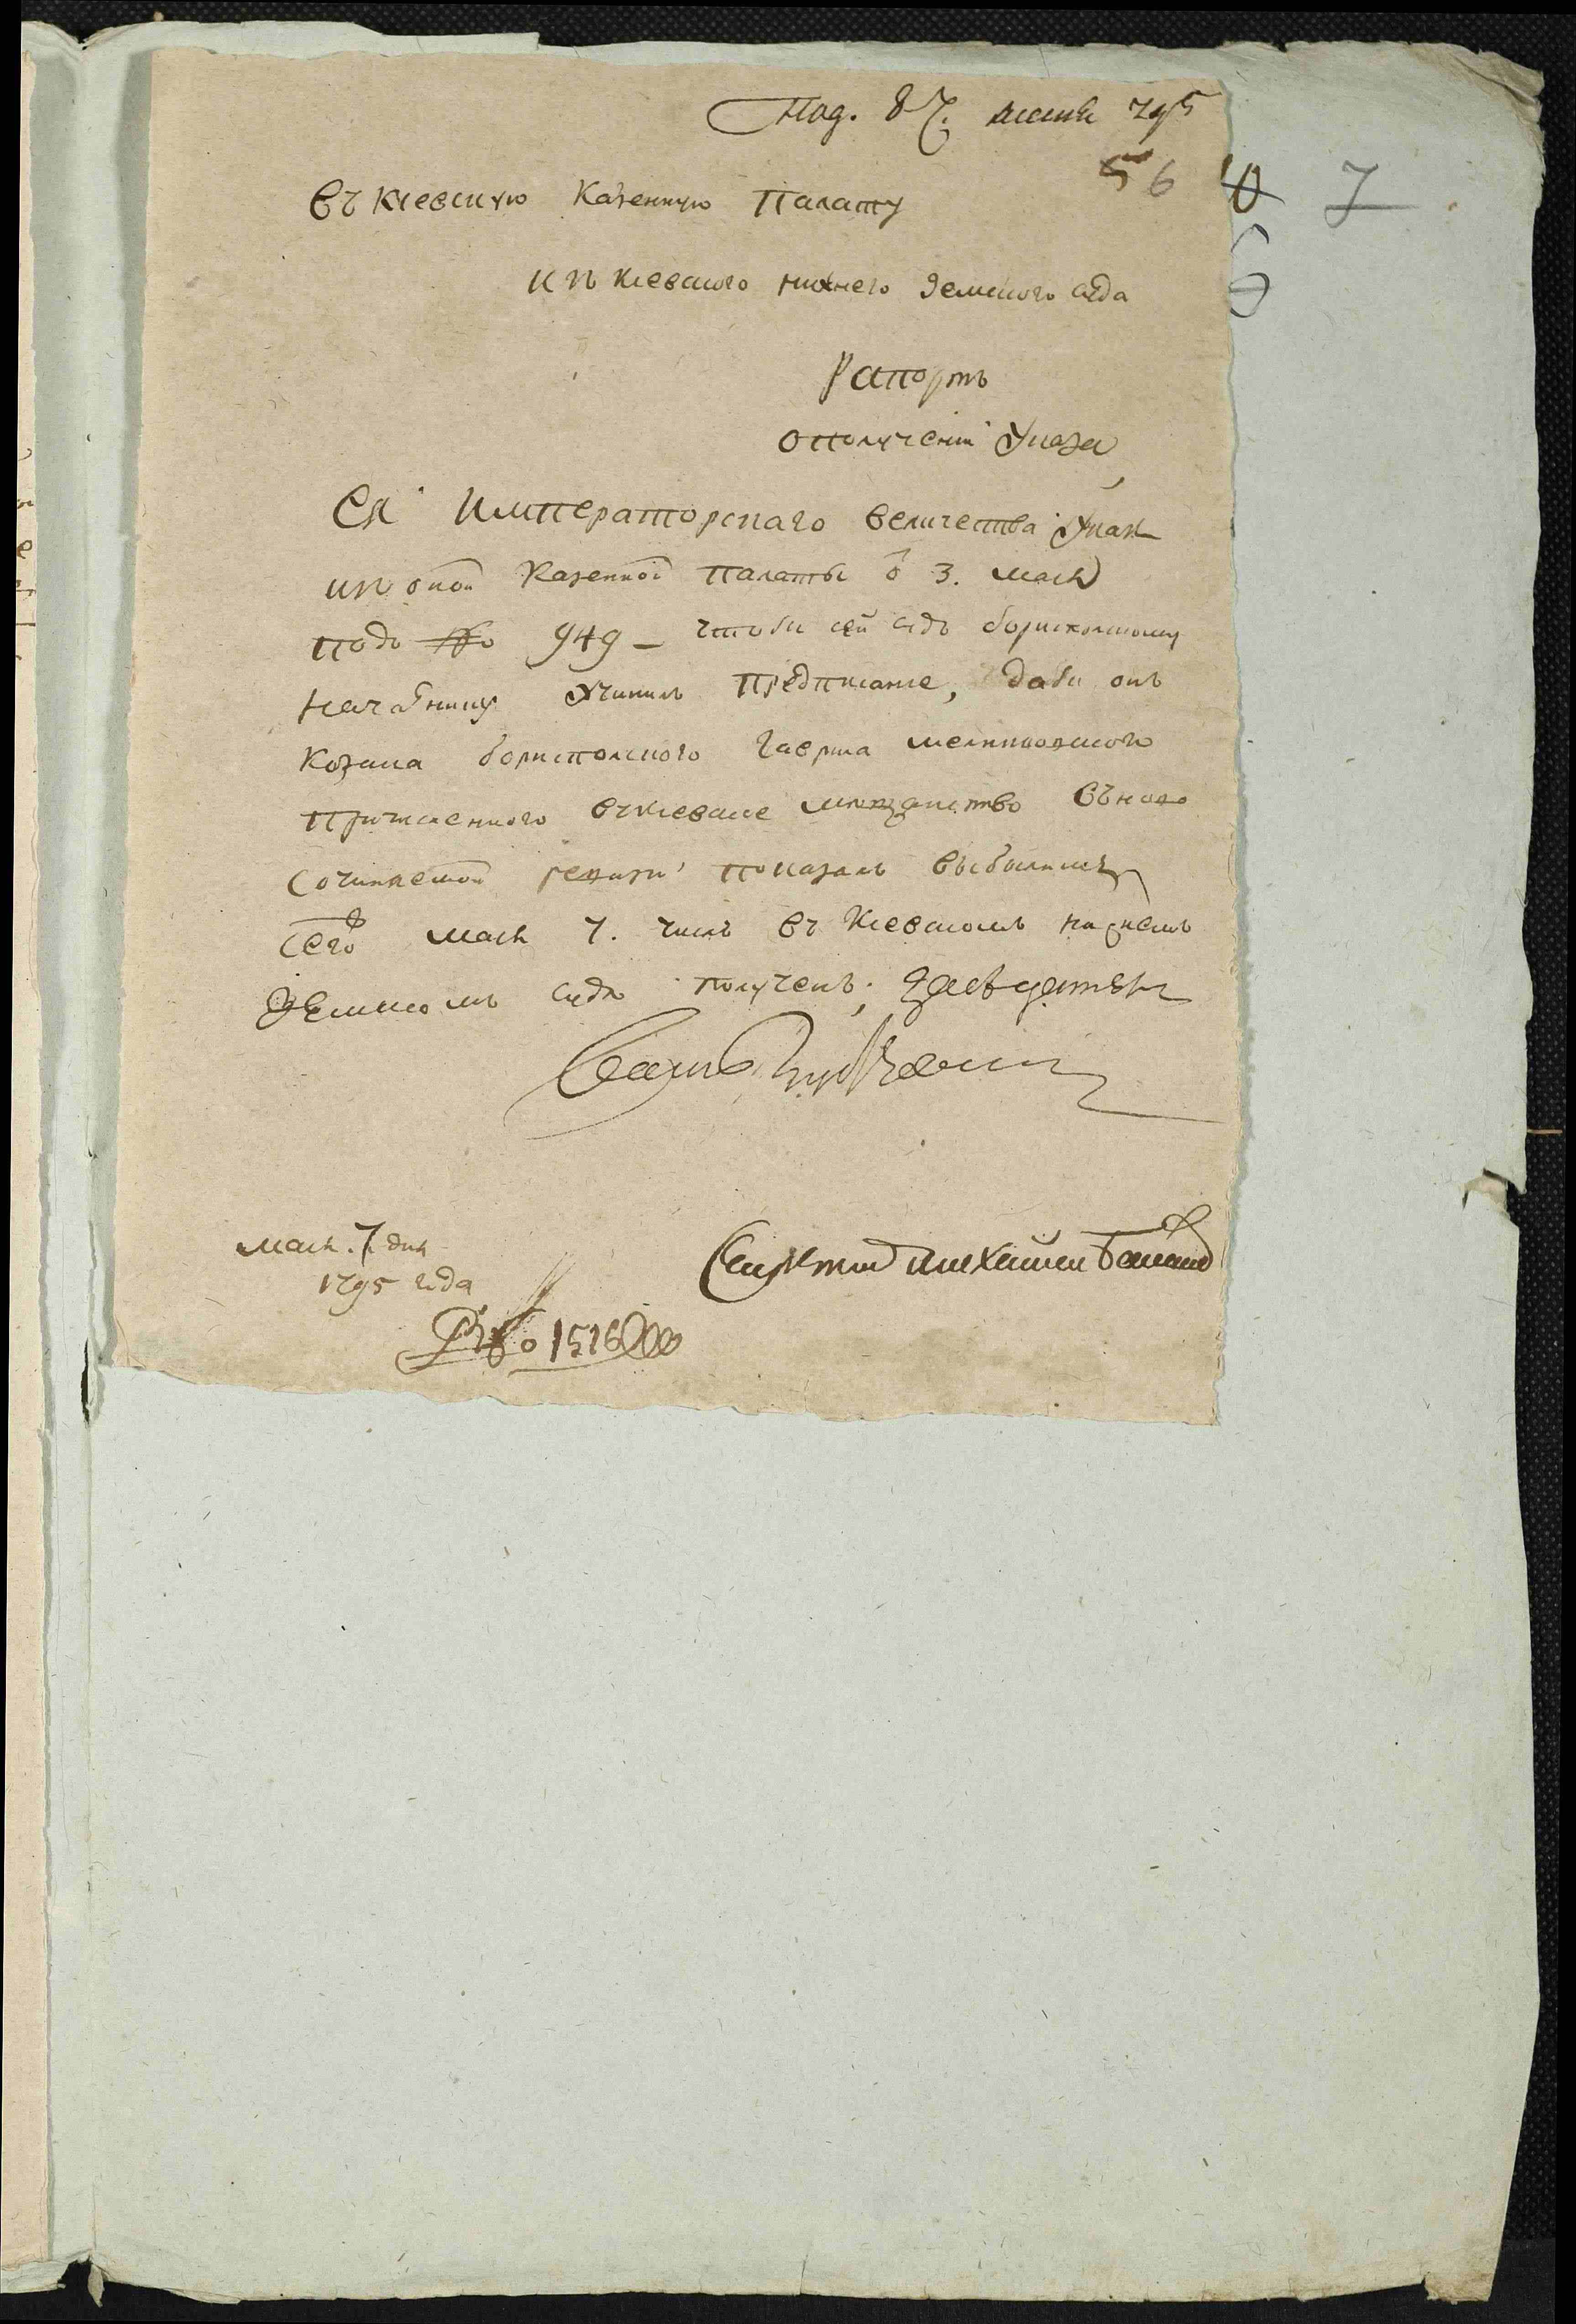 Под. 8 7. маия 795
56 7
Въ киевскую Казенную Палату
изъ киевского нижнего Земского суда
Рапортъ
о получении Указа
Ея Императорскаго величества Указъ
изъ оной Казенной Палаты о 3. маия
подъ № 949 – чтоби сей судъ бориспольскому
началнику учинилъ предписание, даби онъ
козака бориспольского Гаврила мелниковского
причисленного въ киевские мещанство въ ново
сочиняемой ревизи показалъ выбылимъ
Сего маия 7. числа въ Киевскомъ нижнемъ
Земскомъ суде полученъ;
маия. 7 дня
1795 года
№ 1516